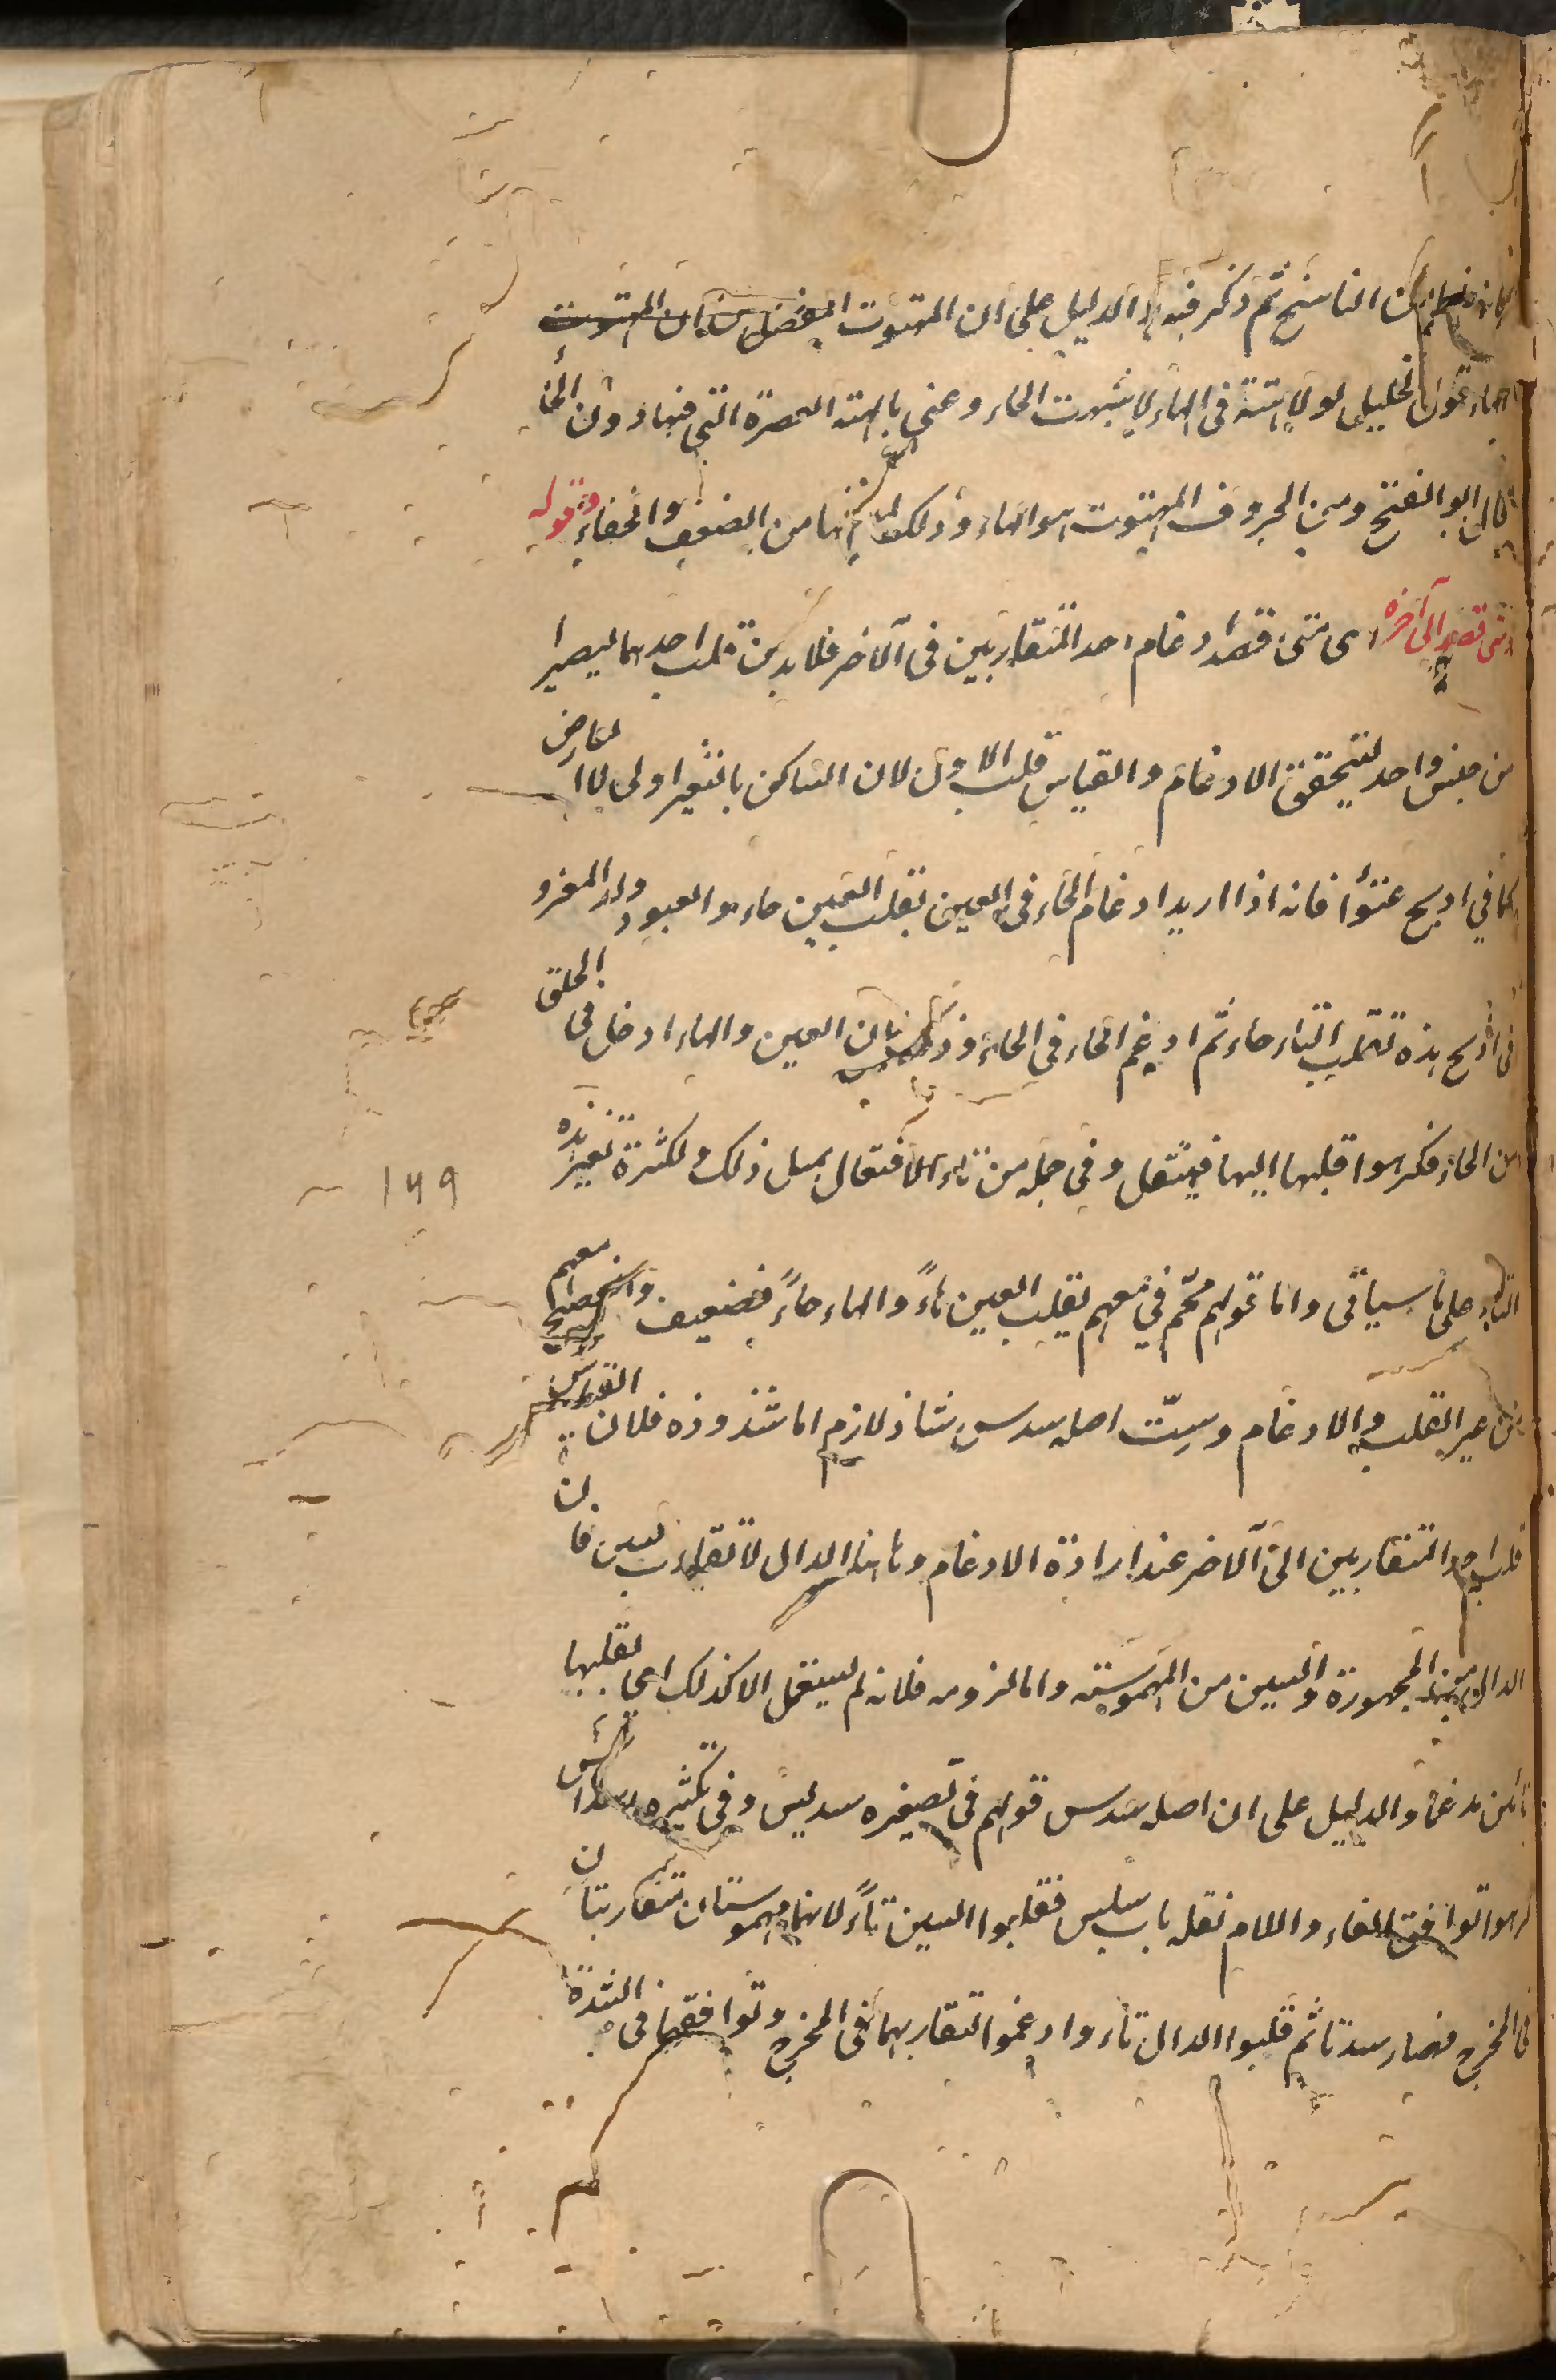 من الناسخ ثم ذكر فيه الدليل على ان المهتوت
الهاء قول الخليل لولا هتة في الهاء لاشبهت الحاء وعنى بالهتة العصرة التي فيها دون الحاء
قال ابو الفتح ومن الحروف المهتوت هو الهاء وذلك لما فيها من الضعف والخفاء وقوله
ومتى قصد الى آخره اى متى قصد ادغام احد المتقاربين في الآخر فلا بد من قلب احدهما ليصيرا
من جنس واحد لتحقق الادغام والقياس قلب الاول لان الساكن بالتغير اولى الا لعارض
كما في اذبح عتودا فانه اذا اريد ادغام الحاء في العين تقلب العين حاء والعتود ولد المعز و
في اذبح هذه تقلب الهاء حاء ثم ادغم الحاء في الحاء وذلك لان العين والهاء ادخل في الحلق
من الحاء فكرهوا قلبها اليها فيثقل وفي جملة من تاء الافتعال بمثل ذلك ولكثرة تغيرنده
التاء على ما سياتى واما قولهم محم في معهم بقلب العين حاءً والهاء حاءً فضعيف والفصيح معهم
من غير القلب والادغام وستّ اصله سدس شاذ لازم اما شذوذه فلان القياس
قلب احد المتقاربين الى الآخر عند ارادة الادغام وهاهنا الدال لا تقارب السين فان
الدال من المجهورة والسين من المهموسة واما لزومه فلانه لم يستعمل الا كذلك اى بقلبها
تائين مدغما والدليل على ان اصله سدس قولهم في تصغيره سديس وفي تكثيره اسداس
كرهوا توافق الفاء واللام نقله باب سلس فقلبوا السين تاءً لانهما مهموستان متقاربتان
في المخرج فصار سدتا ثم قلبوا الدال تاء وادغموا لتقاربهما في المخرج وتوافقهما في الشدة
١٤٩